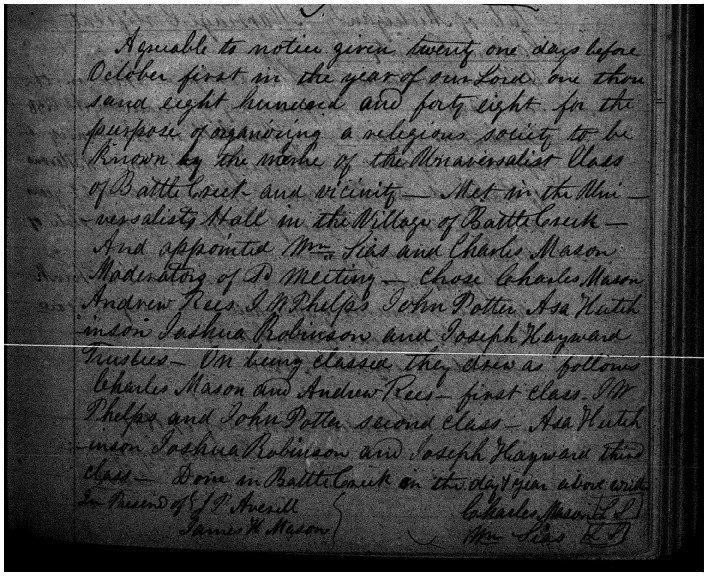 Agreable to notice given twenty one days before
October first in the year of our Lord one thou
sand eight hundred and forty eight for the
purpose of organising a religious society to be
known by the name of the Unaversalist Class
of Battle Creek and vicinity — Met in the Uni -
- versalists Hall in the Village of Battle Creek —
And appointed Wm Sias and Charles Mason
Moderators of Sd Meeting — Chose Charles Mason
Andrew Rees I W Phelps John Potter Asa Hutch
- inson Joshua Robinson and Joseph Hayward
Trustees — On being classed they drew as follows
Charles Mason and Andrew Rees — first class - I W
Phelps and John Potter second class — Asa Hutch
- inson Joshua Robinson and Joseph Hayward third
class — Done in Battle Creek on the day & year above writen
In Presend of J P Averill Charles Mason L S
James H Mason Wm Sias L S